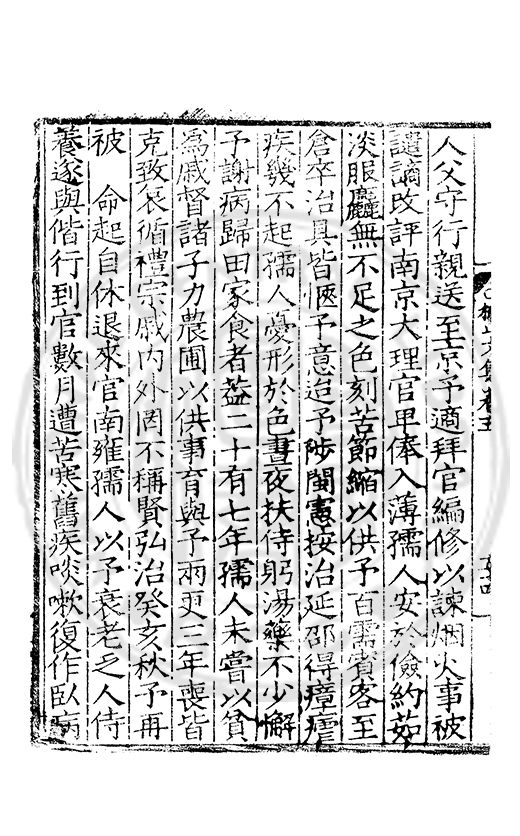 人父守行親送至京予適拜官編修以諫烟火事被
譴謫改評南京大理官卑俸入薄孺人安於儉約茹
淡服麤無不足之色刻苦節縮以供予百需賓客至
倉卒治具皆愜予意迨予陟閩憲按治延邵得瘴瘧
疾幾不起孺人憂形於色晝夜扶侍躬湯藥不少懈
予謝病歸田家食者葢二十有七年孺人未嘗以貧
爲戚督諸子力農圃以供事育與予兩更三年喪皆
克致哀循禮宗戚內外罔不稱賢弘治癸亥秋予再
被　命起自休退來官南雍孺人以予衰老乏人侍
養遂與偕行到官數月遭苦寒舊疾啖嗽復作臥病